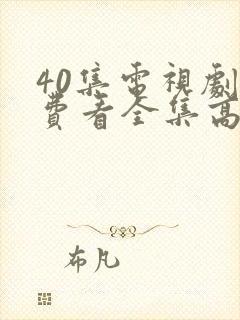 40集電視劇
費看全集高
布凡